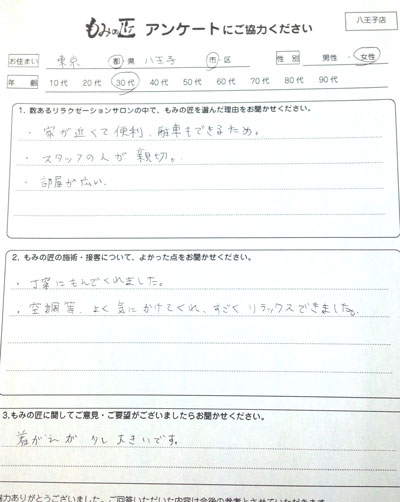 八王子店
もみの匠 アンケートにご協力ください
お住まい 東京 都・県 八王子 市・区 性別 男性・女性
年齢 10代 20代 30代 40代 50代 60代 70代 80代 90代
1. 数あるリラクゼーションサロンの中で、もみの匠を選んだ理由をお聞かせください。
・家が近くて便利、駐車もできるため。
・スタッフの人が親切。
・部屋が広い。
2. もみの匠の施術・接客について、よかった点をお聞かせください。
・丁寧にもんでくれました。
・空調等、よく気にかけてくれ、すごくリラックスできました。
3.もみの匠に関してご意見・ご要望がございましたらお聞かせください。
着がえが少し大きいです。
協力ありがとうございました。ご回答いただいた内容は今後の参考とさせていただきます